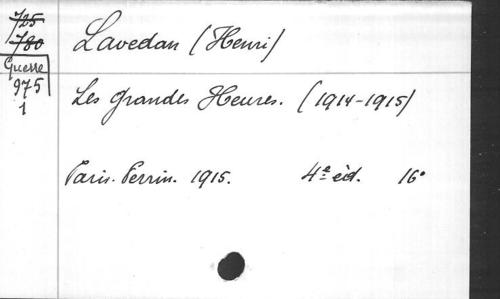 725
780
Guerre
975
1
Lavedan (Henri)
Les Grandes Heures. (1914-1915)
Paris. Perrin. 1915. 4e éd. 16°